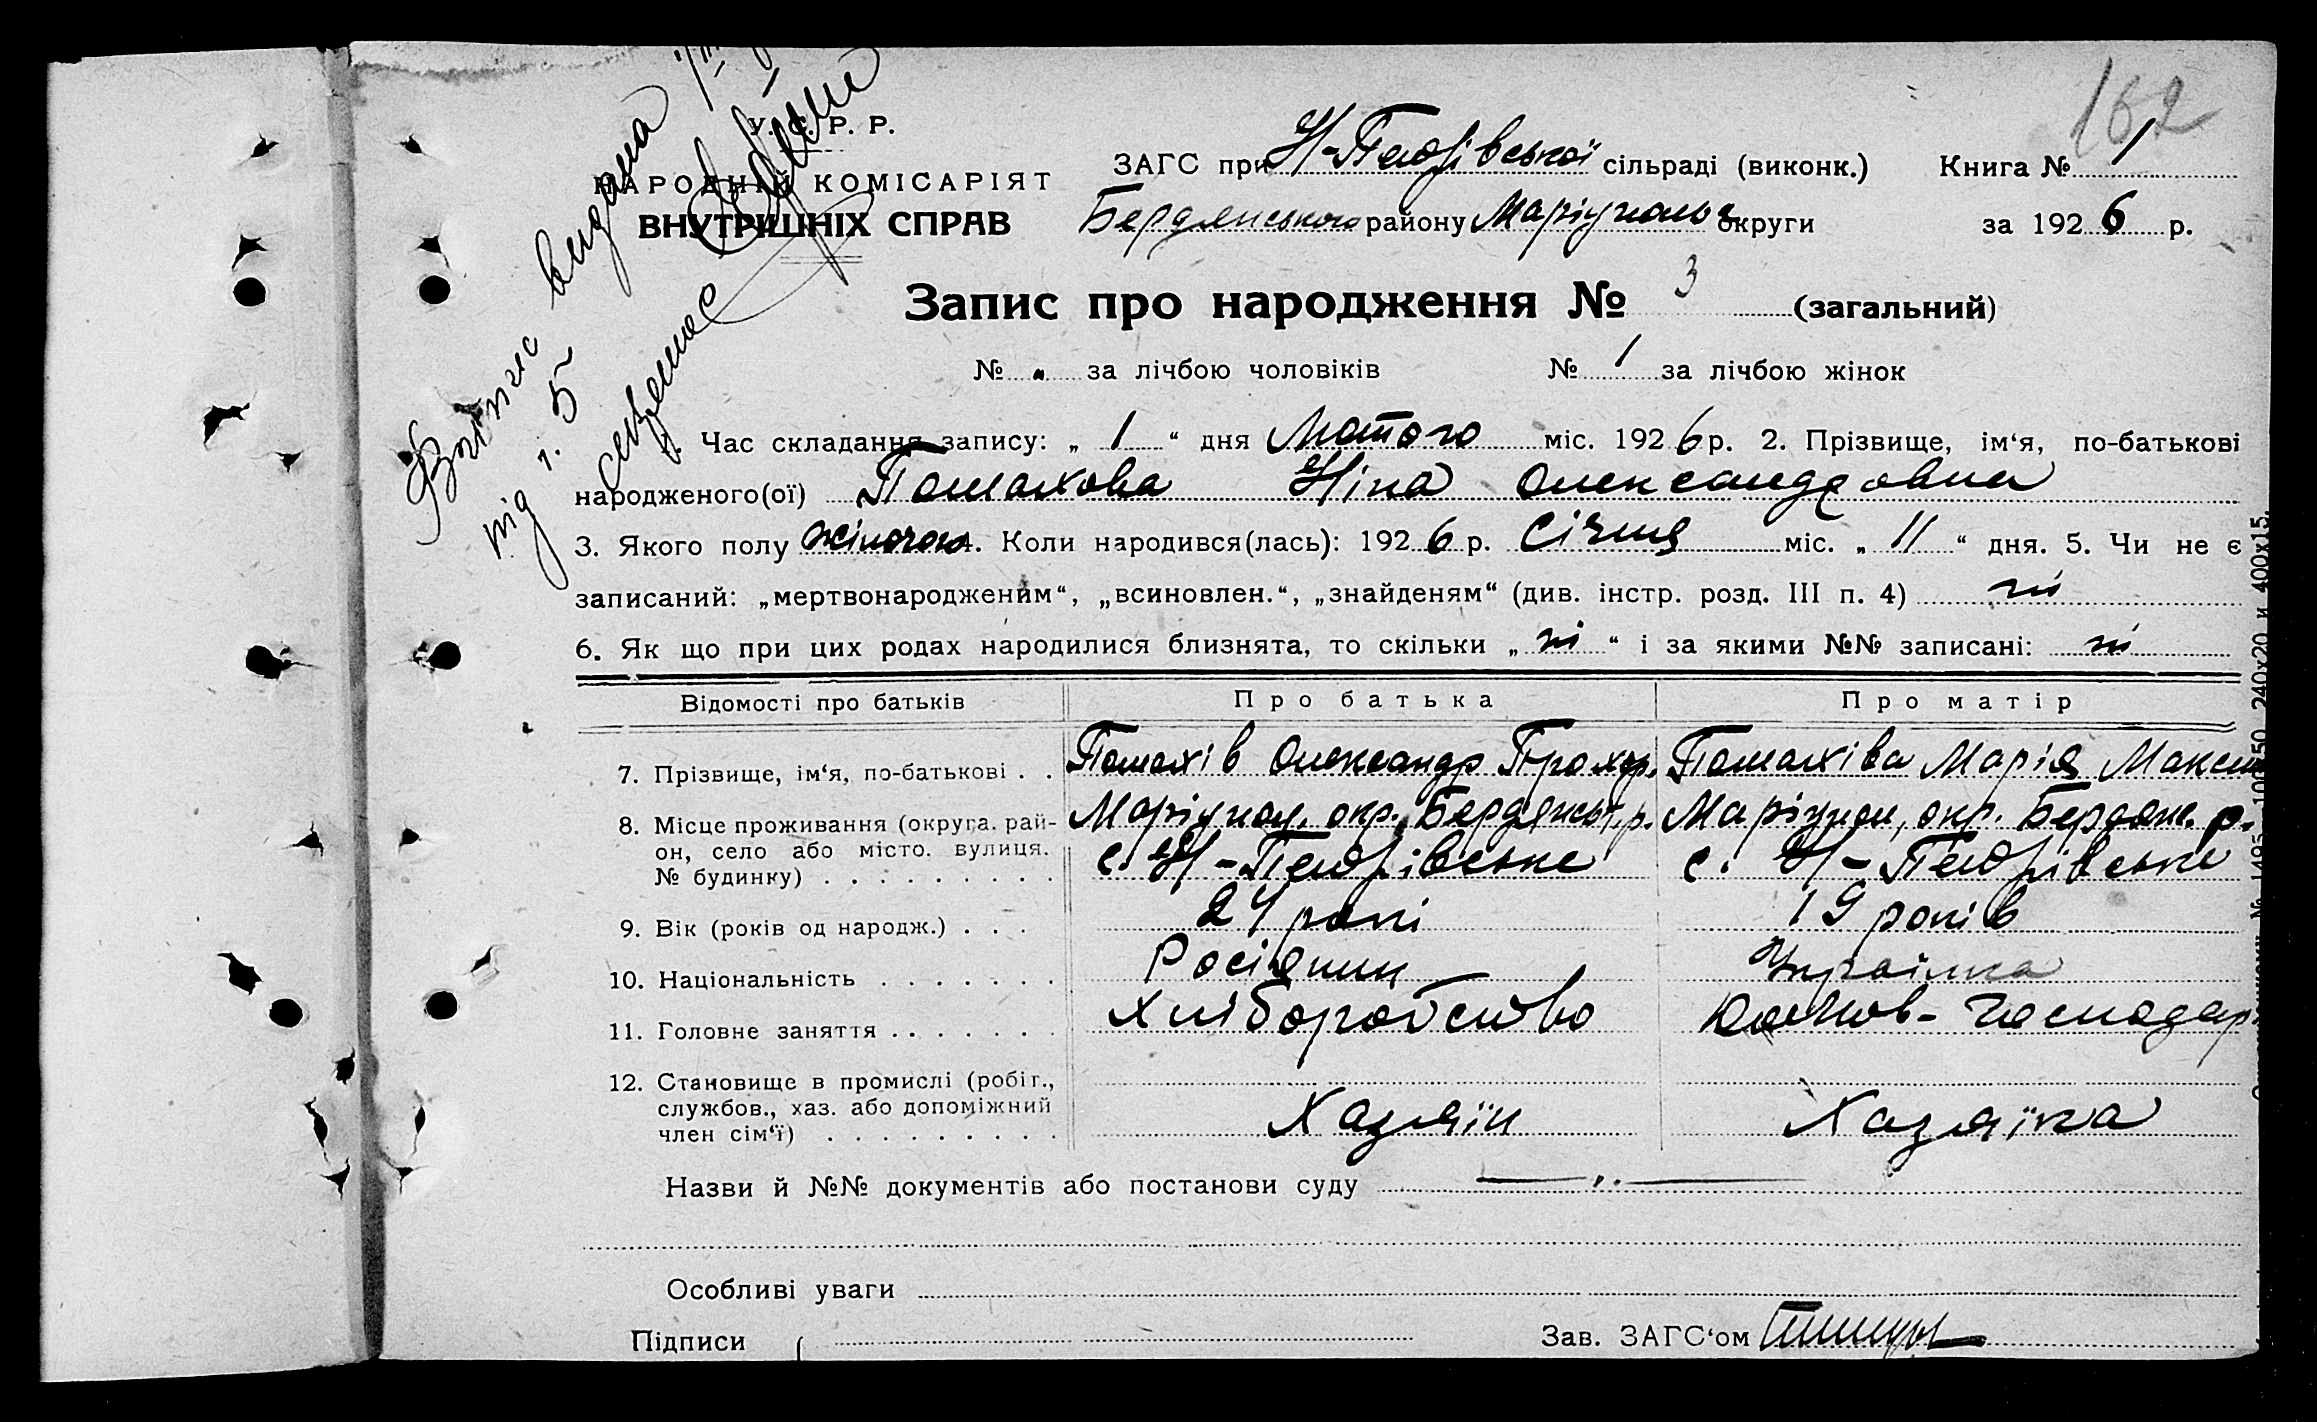 162
У. С. Р. Р.
НАРОДНІЙ КОМІСАРІЯТ
ВНУТРІШНІХ СПРАВ
ЗАГС при Н-Петрівської сільраді (виконк.) Книга № 1
Бердянського району Маріупольс округи за 1926 р.
Випис видана
під ч. 5
Запис про народження № 3 (загальний)
№ " за лічбою чоловіків № 1 за лічбою жінок
1. Час складання запису: „ 1 “ дня Лютого міс. 1926 р. 2. Прізвище, ім‘я, по-батькові
народженого(ої) Помахова Ніна Олександровна
3. Якого полу жіночого 4. Коли народився(лась): 1926 р. Січня міс. „ 11 “ дня. 5. Чи не є
записаний: „мертвонародженим“, „всиновлен.“, „знайденям“ (див. інстр. розд. III п. 4) ні
6. Як що при цих родах народилися близнята, то скільки „ ні “ і за якими №№ записані: ні
Відомості про батьків Про батька Про матір
7. Прізвище, ім‘я, по-батькові . . Помахів Олександр Прохор. Помахіва Марія Максим
8. Місце проживання (округа. рай- Маріупол. окр. Бердянськ. р. Маріупол, окр. Бердянс. р.
он, село або місто. вулиця. с. Н-Петрівське с. Н-Петрівське
№ будинку) . . . . . . . . .
9. Вік (років од народж.) . . . 24 рокі 19 років
10. Національність . . . . . . . Росіянин Українка
11. Головне заняття . . . . . . . Хліборобство Домов-Господар
12. Становище в промислі (робіг.,
службов., хаз. або допоміжний Хазяїн Хазяїка
член сім‘ї) . . . . . . . . .
Назви й №№ документів або постанови суду — „ —
Особливі уваги
Підписи { Зав. ЗАГС‘ом